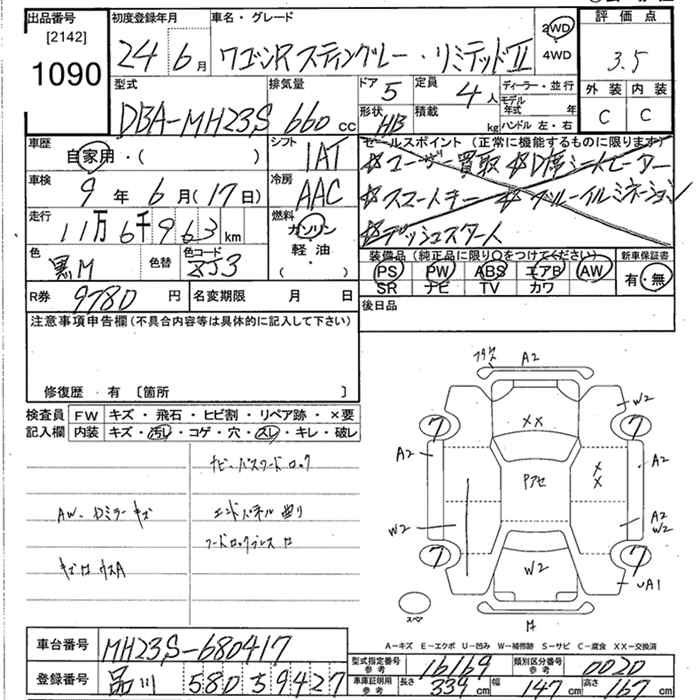 出品番号 初度登録年月 車名・グレード 評価点
[2142]
1090
24年6月 ワゴンR スティングレー・リミテッドII 2WD・4WD 3.5
型式 排気量 ドア 5 定員 4人 ディーラー・並行 外装 内装
DBA-MH23S 660cc 形状 HB 積載 kg モデル年式 年 C C
ハンドル 左・右
車歴 シフト セールスポイント(正常に機能するものに限ります)
自家用・( ) IAT
車検 9年6月(17日) 冷房 AAC
走行 11万6千963km 燃料 ガソリン・軽油・( )
色 黒M 色替 色コード 装備品(純正品に限り○をつけてください) 新車保証書
PS PW ABS エアB AW 有・無
SR ナビ TV カワ
R券 9780円 名変期限 月 日 後日品
注意事項申告欄(不具合内容等は具体的に記入して下さい)
修復歴・有〔箇所 〕
検査員 FW キズ・飛石・ヒビ割・リペア跡・×要
記入欄 内装 キズ・汚レ・コゲ・穴・スレ・キレ・破レ
ナビ・パスワードロック
AW・Dミラーキズ エンドパネル曲り
A2
W2
XX
7 7
A2 Pアセ XX A2
W2 A2 W2
7 W2 7
UA1
スペア
A-キズ E-エクボ U-凹み W-補修跡 S-サビ C-腐食 XX-交換済
車台番号 MH23S-680417 型式指定番号 参考 16169 類別区分番号 参考 0020
登録番号 品川 580 59427 車庫証明用 参考 長さ 339cm 幅 147cm 高さ 167cm